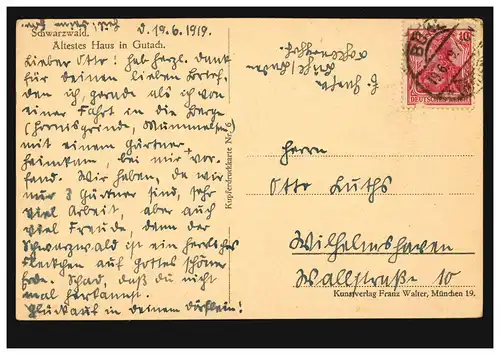 d. 19.6.1919.
Schwarzwald.
Ältestes Haus in Gutach.
Lieber Otto! Hab herzl. Dank
für deinen lieben Brief,
den ich, gerade als ich von
einer Fahrt in die Berge
(Hornisgrinde, Mummelsee)
mit einem Gärtner
heimkam, bei mir vor-
fand. Wir haben, da wir
nur 3 Gärtner sind, sehr
viel Arbeit, aber auch
viel Freude, denn der
Schwarzwald ist ein herrliches
Fleckchen auf Gottes schöner
Erde. Schad, daß du nicht
mal herkannst.
Glückauf in deinem Dörflein!
Kupferdruckkarte No. 6
BÜHL
10
DEUTSCHES REICH
Herrn
Otto Luths
Wilhelmshaven
Wallstraße 10
Kunstverlag Franz Walter, München 19.